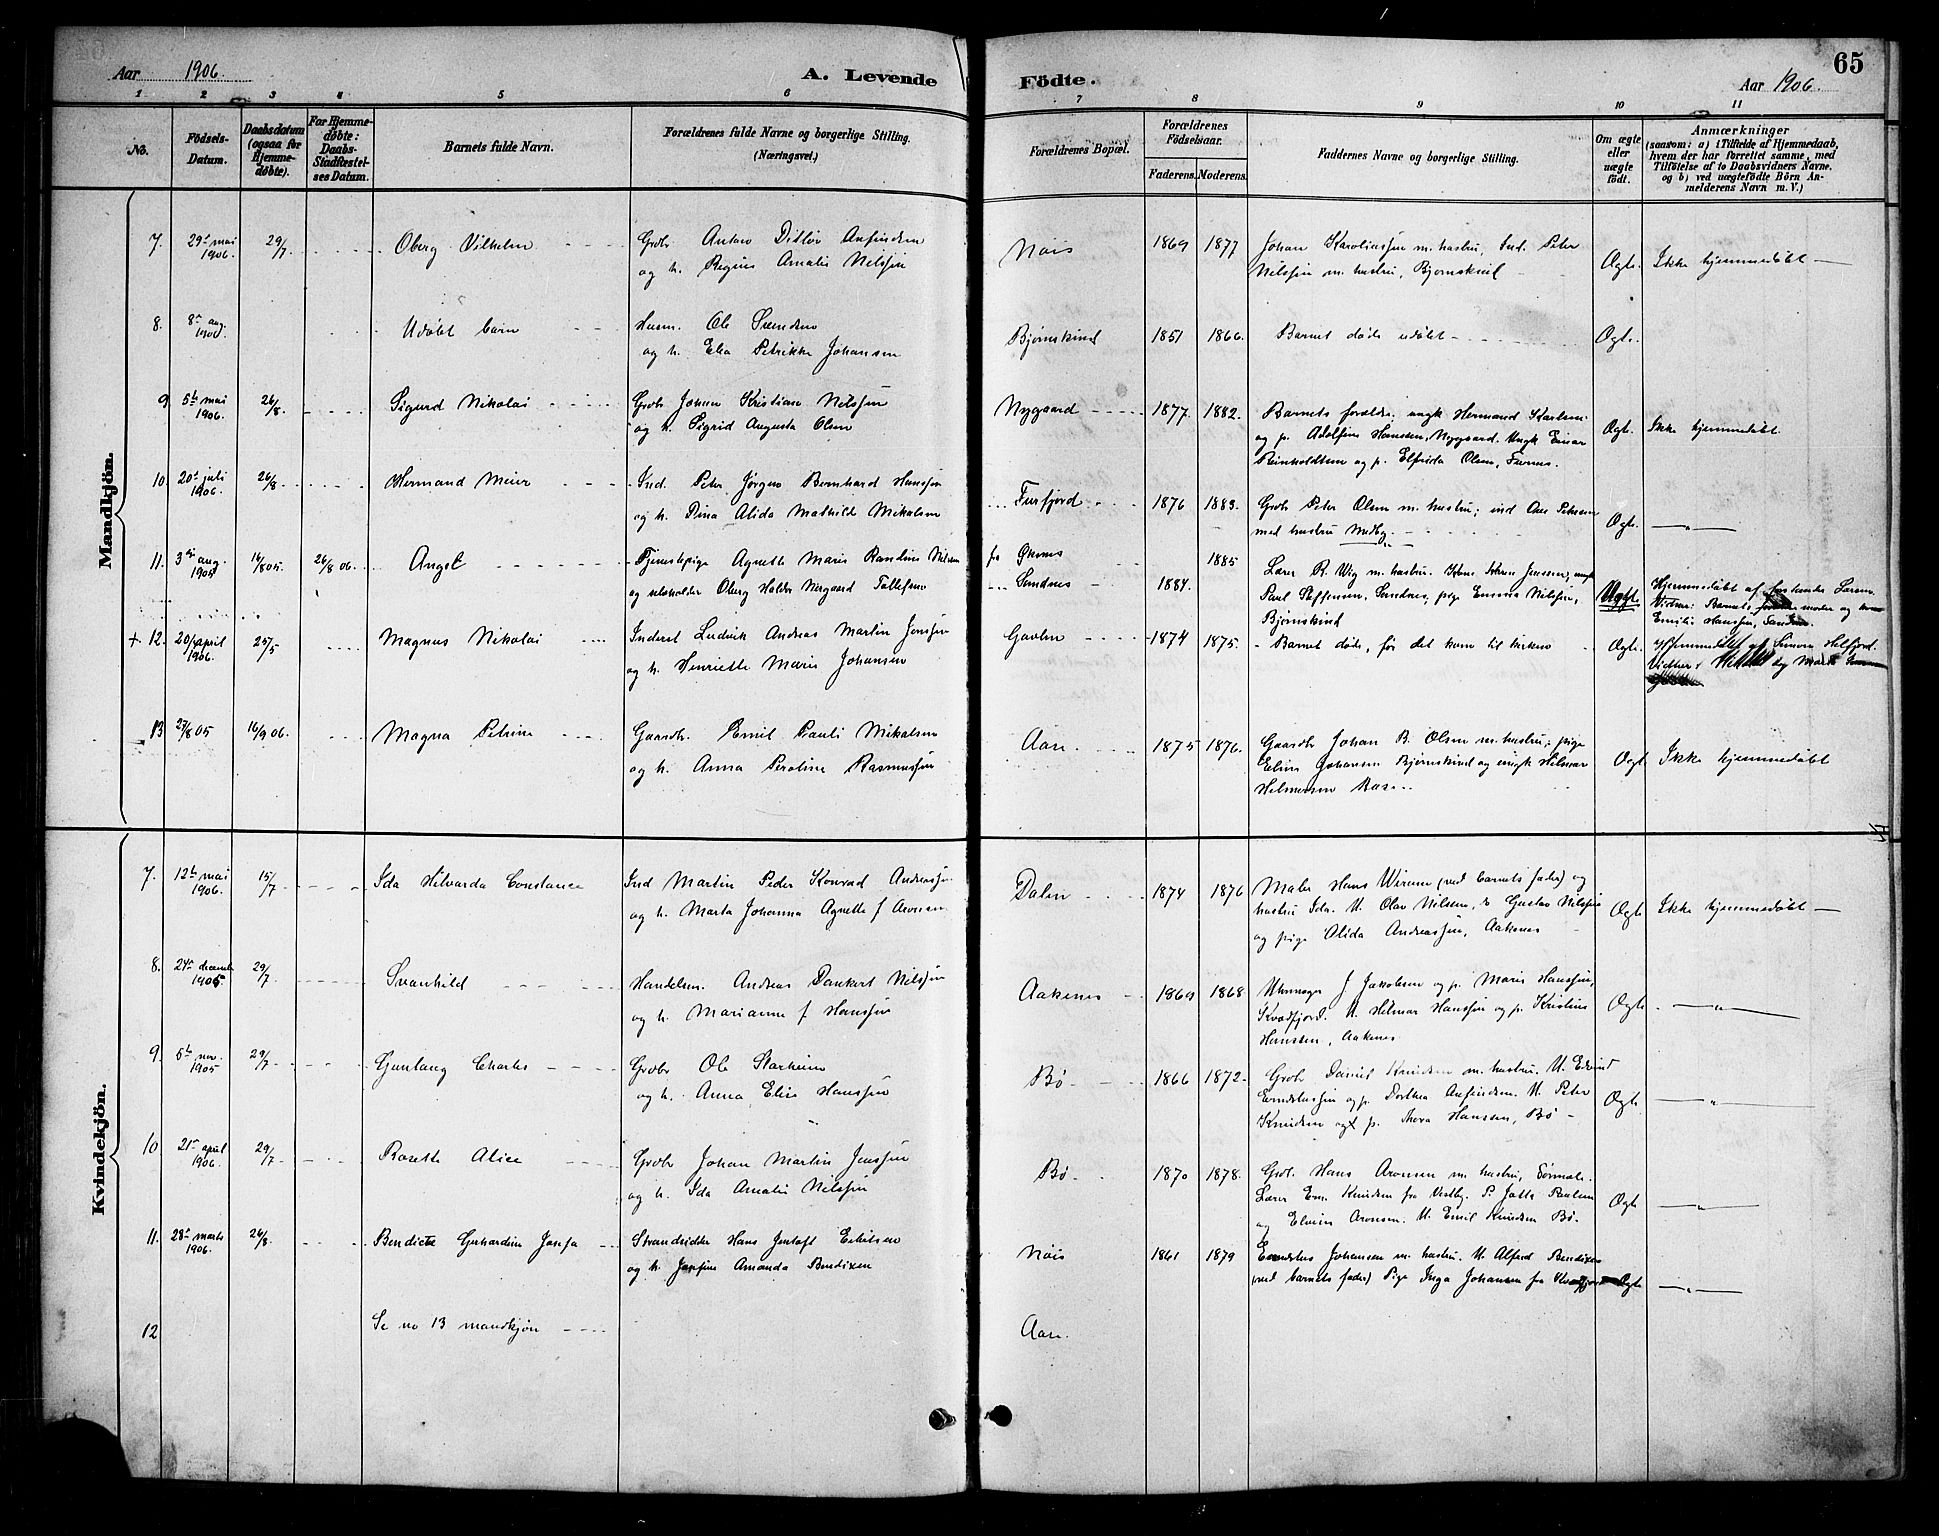 Aar 1906
A. Levende
Födte.
65
Aar 1906.
1 2 3 4 5 6 7 8 9 10 11
No.
Födsels-
Datum.
Daabsdatum
(ogsaa for
Hjemme-
döbte).
For Hjemme-
döbte:
Daabs-
Stadfæstel-
ses Datum.
Barnets fulde Navn.
Forældrenes fulde Navne og borgerlige Stilling.
(Næringsvei.)
Forældrenes Bopæl.
Forældrenes
Födselsaar.
Faderens. Moderens.
Faddernes Navne og borgerlige Stilling.
Om ægte
eller
uægte
födt.
Anmærkninger
(saasom: a) i Tilfælde af Hjemmedaab,
hvem der har forrettet samme, med
Tilföielse af to Daabsvidners Navne,
og b) ved uægtefödte Börn An-
melderens Navn m. V.)
Mandkjön.
7. 29de mai 1906. 29/7. Oberg Vilhelm
Grdbr Anton Ditlöv Anfindsen
og h. Regine Amalie Nilssen
Nois 1869 1877
Johan Karoliussen m. hustru, Ind. Peter
Nilssen m. hustru, Bjørnskind
Ægte. Ikke hjemmedöbt
8. 8de aug. 1906 Udöbt barn
Husm. Ole Svendsen
og h. Elea Petrikke Johansen
Bjørnskind 1851 1866.
Barnet döde udöbt
Ægte.
9. 5te mai 1906. 26/8. Sigurd Nikolai
Grdbr Johan Kristian Nilssen
og h. Sigrid Augusta Olsen
Nygaard 1877. 1882.
Barnets forældre. ungk Hermand Karlsen
og p. Adolfine Hanssen, Nygaard. Ungk Einar
Reinholdtsen og p. Elfrida Olsen, Furnes.
Ægte. Ikke hjemmedöbt.
10. 20de juli 1906. 26/8. Hermand Meier
Ind. Peter Jörgen Bernhard Hanssen
og h. Dina Alida Mathilde Mikalsen
Forfjord 1876 1883.
Grdbr Peter Olsen m. hustru; ind
med hustru
Ægte. — " —
11. 3die aug. 1905 14/8 05. 26/8 06. Angel
Tjenestepige Agnette Marie Randine Nilsen
og Oberg Haldor Nergaard Tollefsen
fra Øksnes 1885
Sandnes 1884.
Lærer R. Wig m. hustru. Jenssen, ungk
Paul Steffensen, Sandnes, pige Emma Nilssen,
Bjørnskind
Uægte
Hjemmedöbt af Larsen
Vidner: Barnets moder og
Emilie Hanssen, Sandnes.
+ 12. 20/april 1906. 25/5 Magnus Nikolai
Inderst Ludvik Andreas Martin Jenssen
og h. Henriette Marie Johansen
Gavlen 1874 1875.
Barnet döde, för det kom til kirken
Ægte.
Hjemmedöbt af
Vidner:
13 27/8 05 16/9 06. Magna Petrine
Gaardbr. Emil Pauli Mikalsen
og h. Anna Peroline Rasmussen
Aan. 1875 1876.
Gaardbr Johan B. Olsen m. hustru; pige
Eline Johansen Bjørnskind og ungk Helmar
Helmersen
Ægte Ikke hjemmedöbt
Kvindekjön.
7. 12te mai 1906. 15/7 Ida Hilvarda Constance
Ind Martin Peder Konrad Andreassen
og h. Marta Johanna Agnette f Aronsen
Dalen 1874 1876
Maler Hans (ved barnets fader) og
hustru Ida. U. Olav Nilsen, Gustav Nilssen
og pige Alida Andreassen, Aaknes
Ægte Ikke hjemmedöbt
8. 24de december 1905 29/7 Svanhild
Handelsm. Andreas Dankert Nilssen
og h. Marianne f Hanssen
Aaknes 1869 1868
J Jakobsen og p. Marie Hanssen,
Kvæfjord. U Helmar Hanssen og p. Kristine
Hanssen, Aaknes
Ægte — " —
9. 5te nov. 1905 29/7 Gunlaug Charles
Grdbr Ole Starheim
og h. Anna Elise Hanssen
Bö 1866 1872.
Grdbr Daniel Knudsen m. hustru. U. Edvind
og p. Dorthea Anfindsen. U Peter
Knudsen og p. Thora Hanssen, Bö
Ægte — " —
10 21de april 1906. 29/7 Rosette Alice
Grdbr Johan Martin Jenssen
og h. Ida Amalie Nilssen
Bö 1870 1878.
Grdb. Hans Aronsen m. hustru,
Lærer Knudsen fra P. Paulsen
og Aronsen. U. Emil Knudsen Bö.
Ægte — " —
11. 28de marts 1906. 26/8 Benedicte Gerhardine Josefa
Strandsidder Hans Jentoft Eilitsen
og h. Josefine Amanda Bendixen
Nois 1861 1879
Johansen m. hustru. U Alfred Bendixen
(ved barnets fader) Pige Inga Johansen fra
Ægte — " —
12 Se no 13 mandkjön
Aan.